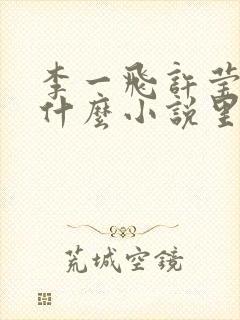 李一飛許瑩
什麼小說里
荒城空鏡